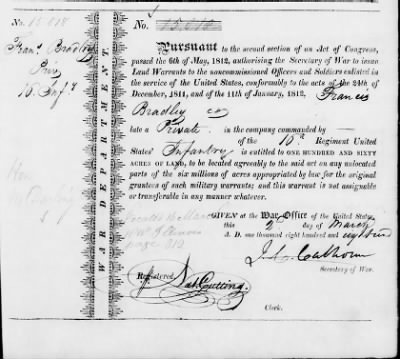 No. 15.018
Fran. Bradley
Priv
15. Inf'y
WAR DEPARTMENT.
No. 15,018
Pursuant to the second section of an Act of Congress,
passed the 6th of May, 1812, authorising the Secretary of War to issue
Land Warrants to the noncommissioned Officers and Soldiers enlisted in
the service of the United States, conformably to the acts of the 24th of
December, 1811, and of the 11th of January, 1812, Francis
Bradley
late a Private in the company commanded by —
of the 15th Regiment United
States' Infantry is entitled to ONE HUNDRED AND SIXTY
ACRES OF LAND, to be located agreeably to the said act on any unlocated
parts of the six millions of acres appropriated by law for the original
grantees of such military warrants; and this warrant is not assignable
or transferable in any manner whatever.
GIVEN at the War Office of the United States,
this 2d day of March
A. D. one thousand eight hundred and eighteen
J. C. Calhoun
Secretary of War.
Registered Nat Cutting
Clerk.
page 312